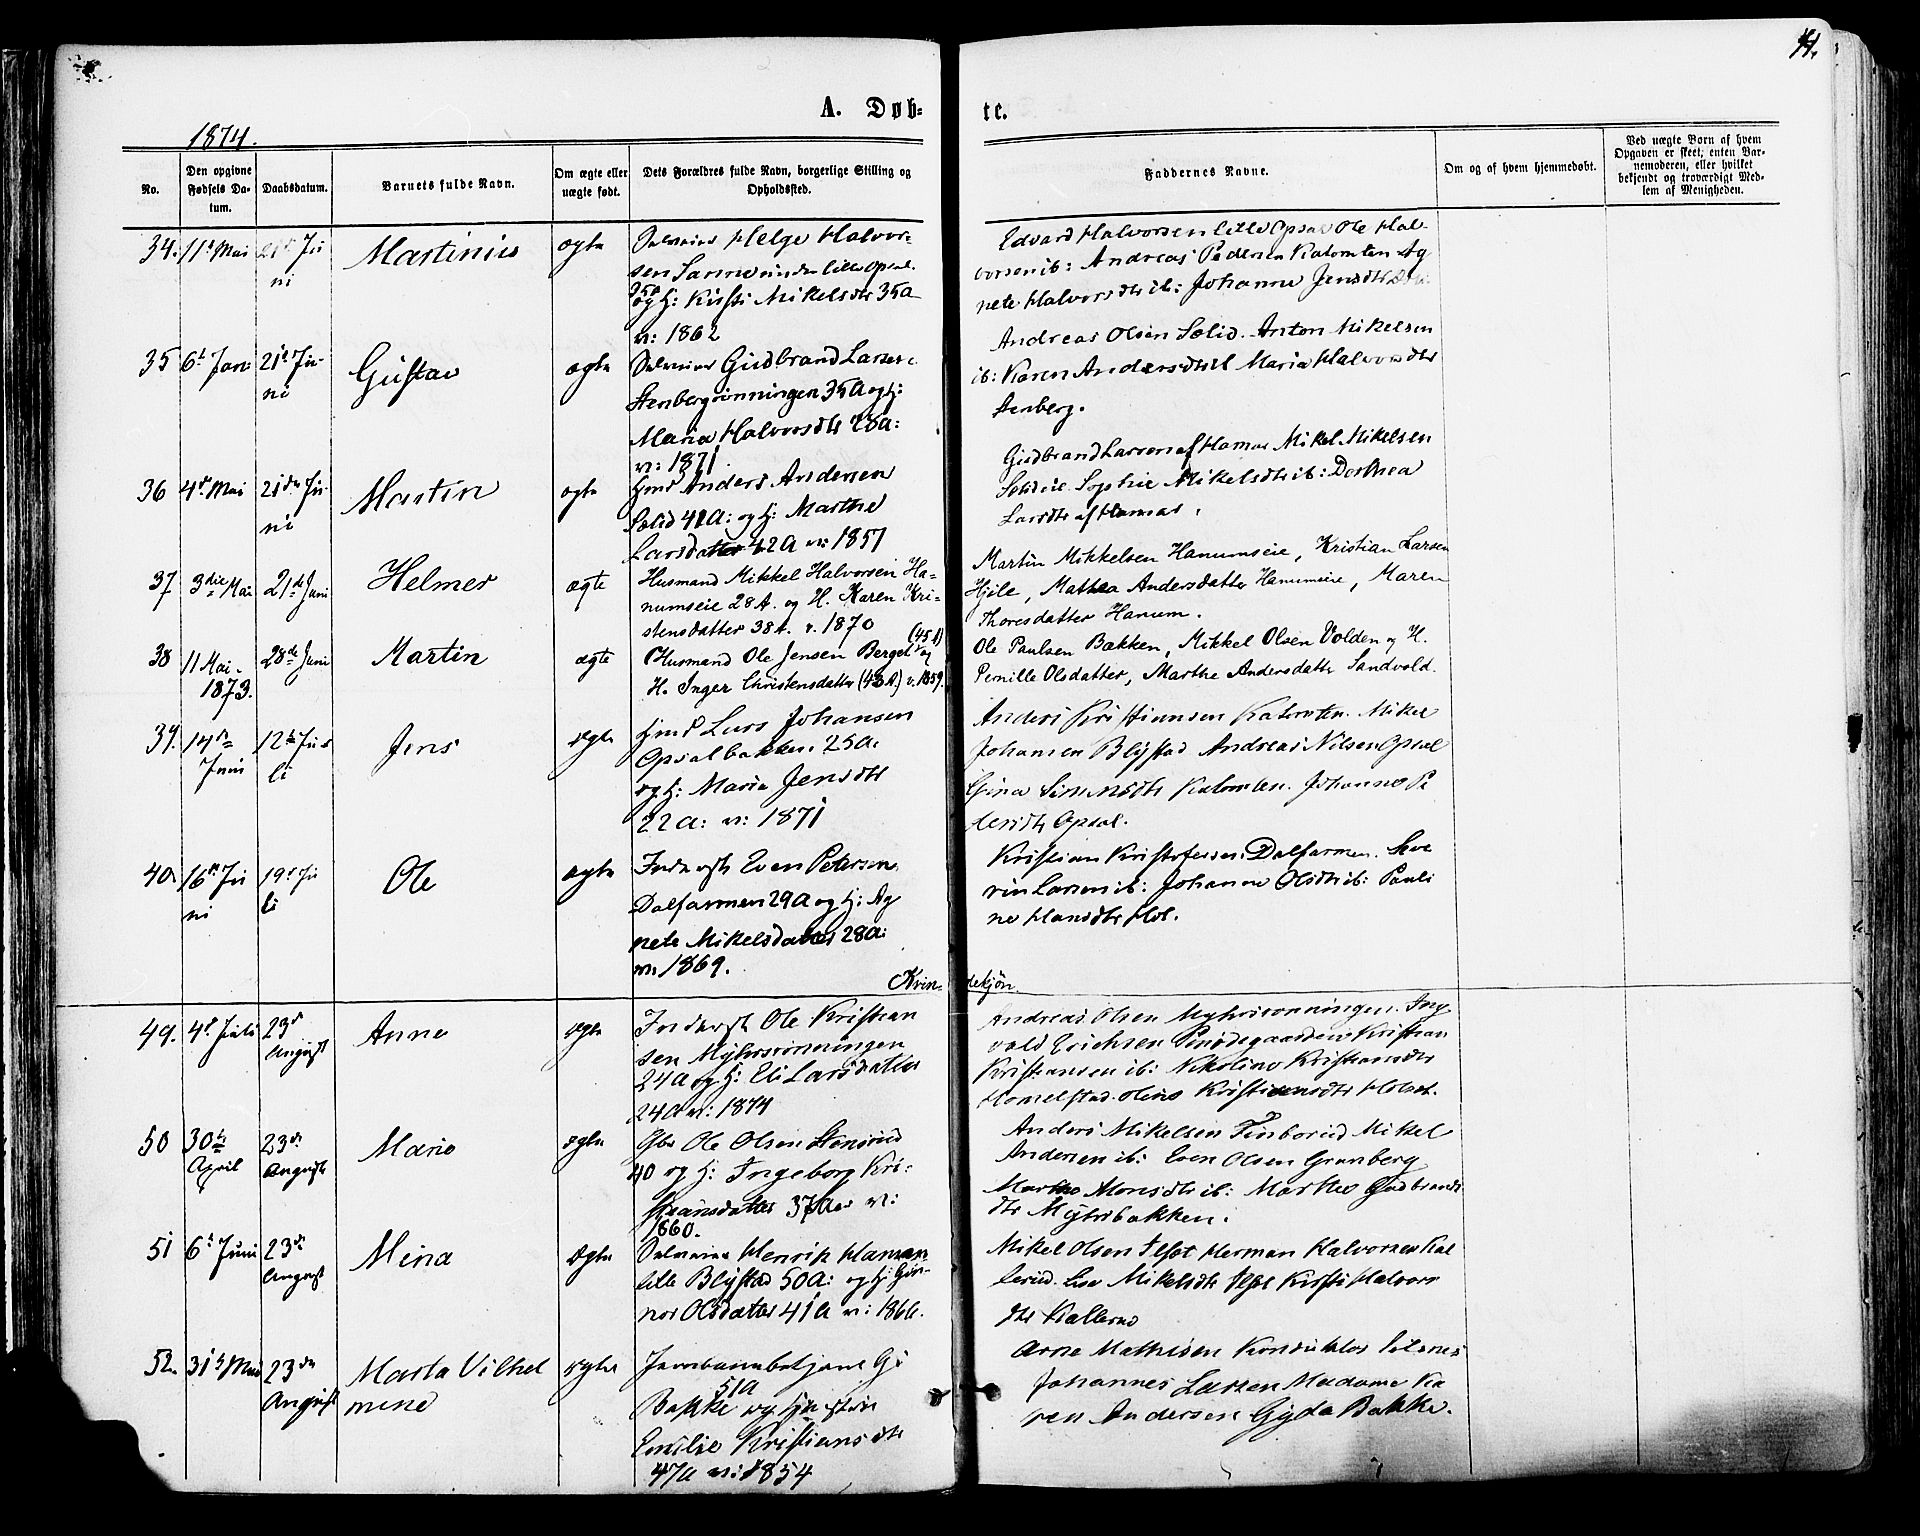 41.
A. Døb- te.
1874.
No.
Den opgivne Fødsels Da-
tum.
Daabsdatum.
Barnets fulde Navn.
Om ægte eller
uægte født.
Dets Forældres fulde Navn, borgerlige Stilling og
Opholdssted.
Faddernes Navne.
Om og af hvem hjemmedøbt.
Ved uægte Børn af hvem
Opgaven er skeet; enten Bar-
nemoderen, eller hvilket
bekjendt og troværdigt Med-
lem af Menigheden.
34. 11 Mai 21 Ju-
ni
Martinius
ægte
Helge Halvor-
sen lille Opsal
35A og H: Kirsti Mikelsdtr 35A
v: 1862
Edvard Halvorsen lille Opsal Ole Hal-
vorsen ib: Andreas Pedersen Kalomten Ag
nete Halvorsdtr ib: Johanne Jensdtr
35 6t Jan: 21 Ju-
ni
Gustav
ægte
Gudbrand Larsen
Stenbergrønningen 35A og H:
Maria Halvorsdtr 28A:
v: 1871
Andreas Olsen Sælid. Anton Mikelsen
ib: Karen Andersdtr Maria Halvorsdtr
Stenberg.
36 4 Mai 21de Ju-
ni
Martin
ægte
Hmd Anders Andersen
Sælid 41A: og H: Marthe
Larsdatter 42A v: 1857
Gudbrand Larsen af Hamar Mikel Mikelsen
Sophie Mikelsdtr ib: Dorthea
Larsdtr af Hamar.
37 3die Mai 21de Juni
Helmer
ægte
Husmand Mikkel Halvorsen Ha-
numseie 28 A. og H. Karen Kri-
stensdatter 38 A. v. 1870
Martin Mikkelsen Hanumseie, Kristian Larsen
Hjelle, Mathea Andersdatter Hanumseie, Maren
Thoresdatter Hanum.
38 11 Mai
1873. 28de Juni
Martin
ægte
Husmand Ole Jensen Berget (45 A) og
H. Inger Christensdatter (43 A.) v. 1859.
Ole Paulsen Bakken, Mikkel Olsen Volden og H.
Pernille Olsdatter, Marthe Andersdatter Sandvold.
39. 14
Juni 12 Ju-
li
Jens
ægte
Hmd Lars Johansen
Opsalbakken 25A:
og H: Maria Jensdtr
22A: v: 1871
Anders Kristiansen Kalomten. Mikel
Johansen Blystad Andreas Nilsen Opsal
Gina Simensdtr Kalomten. Johanne Pe
dersdtr Opsal.
40. 16 Ju
ni 19 Ju
li
Ole
ægte
Inderst Even Petersen
Dalfarmen 29A og H: Ag
nete Mikelsdatter 28A:
v: 1869.
Kristian Kristofersen Dalfarmen. Seve
rin Larsen ib: Johanne Olsdtr ib: Pauli
ne Hansdtr Hol.
Kvin- dekjøn.
49. 4 Juli 23d
August
Anne
ægte
Inderst Ole Kristian
sen Myhrsrønningen
24A og H: Eli Larsdatter
24A v: 1874
Andreas Olsen Myhrsrønningen. Ing
vald Erichsen Kristian
Kristiansen ib: Nikoline Kristiansdtr
Homelstad. Oline Kristiansdtr Holset.
50 30
April 23de
August
Marie
ægte
Gbr Ole Olsen Stensrud
40 og H: Ingeborg Kri-
stiansdatter 37A v:
1860.
Anders Mikelsen Finborud Mikel
Andersen ib: Even Olsen Grønberg
Marthe Monsdtr ib: Marthe Gudbrands
dtr Myhrbakken.
51 6 Juni 23de
August
Mina
ægte
Henrik Hansen
lille Blystad 50A: og H: Gu-
nor Olsdatter 41A v: 1866.
Mikel Olsen Ilset Herman Halvorsen Kal
lerud. Lise Mikelsdtr Ilset Kirsti Halvors
dtr Kallerud
52. 31 Mai 23de
August
Marta Vilhel
mine
ægte
Jernbanebetjent G:
Bakke 51A og Hustru
Emilie Kristiansdtr
47A v: 1854
Arne Mathisen Konduktør
Johannes Larsen Madame Ka
ren Andersen Gyda Bakke.